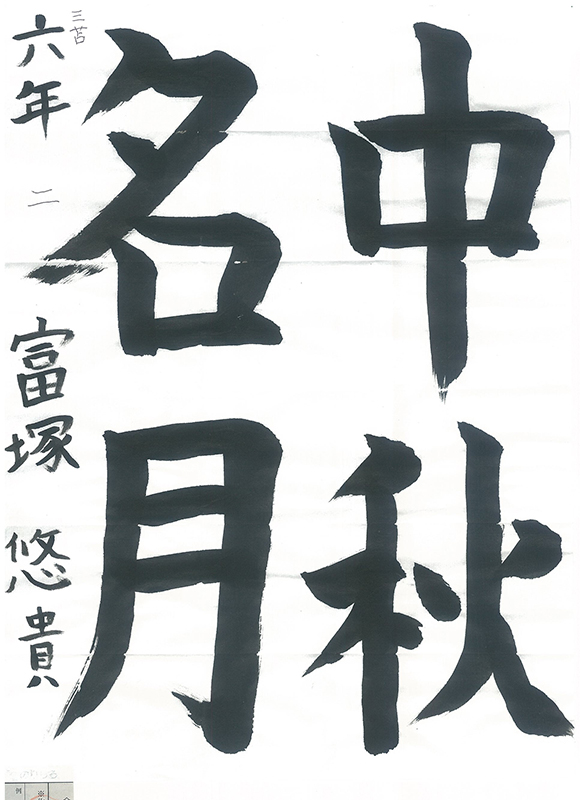 中秋
名月
三苫
六年 二 富塚 悠貴
例